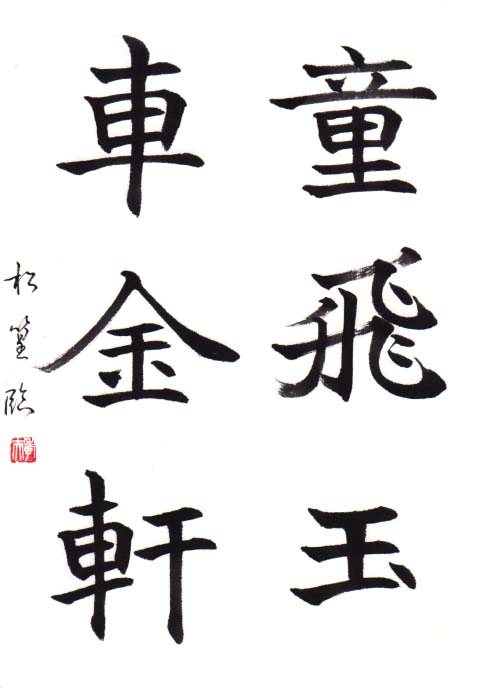 童飛玉
車金軒
松篁臨